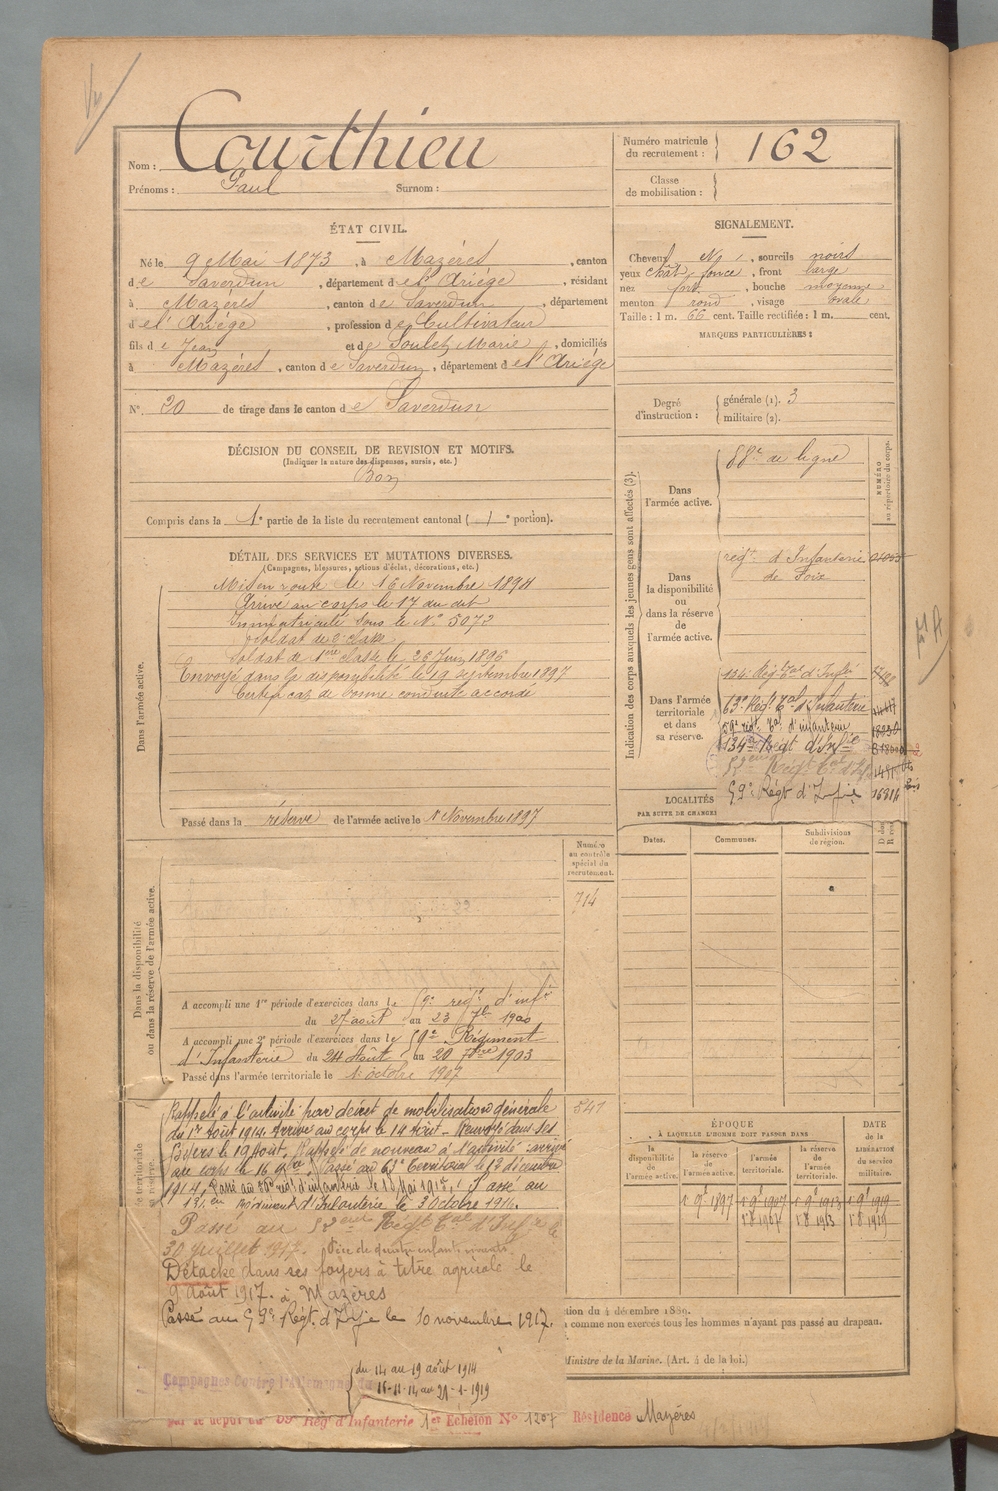 Nom : Courthieu
Prénoms : Paul Surnom :
Numéro matricule du recrutement : 162
Classe de mobilisation :
ÉTAT CIVIL.
Né le 9 Mai 1873, à Mazérés, canton
de Saverdun, département de l'Ariége, résidant
à Mazérés, canton de Saverdun, département
de l'Ariége, profession de Cultivateur
fils de Jean et de Soulet Marie, domiciliés
à Mazérés, canton de Saverdun, département de l'Ariége
N° 20 de tirage dans le canton de Saverdun
SIGNALEMENT.
Cheveux No, sourcils noirs
yeux chât. foncé, front large
nez fort, bouche moyenne
menton rond, visage ovale
Taille : 1 m. 66 cent. Taille rectifiée : 1 m. cent.
MARQUES PARTICULIÈRES :
Degré d'instruction : générale (1). 3
militaire (2).
DÉCISION DU CONSEIL DE REVISION ET MOTIFS.
(Indiquer la nature des dispenses, sursis, etc.)
Bon
Compris dans la 1e partie de la liste du recrutement cantonal ( portion).
DÉTAIL DES SERVICES ET MUTATIONS DIVERSES.
(Campagnes, blessures, actions d'éclat, décorations, etc.)
Dans l'armée active.
Mis en route le 16 Novembre 1894
Arrivé au corps le 17 du dit
Immatriculé sous le N° 5072
Soldat de 2e classe
Soldat de 1ere classe le 26 Juin 1896
Envoyé dans la disponibilité le 19 septembre 1897
Certificat de bonne conduite accordé
Passé dans la réserve de l'armée active le 1 Novembre 1897
Indication des corps auxquels les jeunes gens sont affectés (3).
NUMÉRO au répertoire du corps.
Dans l'armée active.
88e de ligne
Dans la disponibilité ou dans la réserve de l'armée active.
régt d'Infanterie
de Foix
Dans l'armée territoriale et dans sa réserve.
134e Régt Tal d'Infie
63e Régt Tal d'Infanterie
59e régt Tal d'infanterie
134e Régt d'Infie
59e Régt d'Infie 16314
LOCALITÉS
PAR SUITE DE CHANGE
Dates. Communes. Subdivisions de région.
Numéro au contrôle spécial du recrutement.
714
Dans la disponibilité ou dans la réserve de l'armée active.
A accompli une 1re période d'exercices dans le 59e régt d'infie
du 27 août au 23 7bre 1900
A accompli une 2e période d'exercices dans le 59e Régiment
d'Infanterie du 24 Août au 20 7bre 1903
Passé dans l'armée territoriale le 1 octobre 1907
841
Rappelé à l'activité par décret de mobilisation générale
du 1er Août 1914. Arrivé au corps le 14 Août. Renvoyé dans ses
foyers le 19 août. Rappelé de nouveau à l'activité : arrivé
au corps le 16 9bre. Passé au 63e Territorial le 12 décembre
1914. Passé au 59e régt d'infanterie le 18 Mai 1915. Passé au
134em Régiment d'Infanterie le 3 Octobre 1916.
Passé au Régt Tal d'Infie le
30 juillet 1917. Père de quatre enfants vivants.
Détaché dans ses foyers à titre agricole le
9 août 1917. à Mazères
Passé au 59e Régt d'Infie le 10 novembre 1917.
Campagnes Contre l'Allemagne du
du 14 au 19 août 1914
16-11-14 au 21-1-1919
par le dépôt du 59e Rég. d'Infanterie 1er Echelon N° 1207 Résidence Mazéres
ÉPOQUE
À LAQUELLE L'HOMME DOIT PASSER DANS
la disponibilité de l'armée active.
la réserve de l'armée active.
l'armée territoriale.
la réserve de l'armée territoriale.
DATE de la LIBÉRATION du service militaire.
1r 9b 1897 1r 9b 1907 1r 9b 1913 1r 9b 1919
1r 8 1907 1r 8 1913 1r 8 1919
tion du 4 décembre 1889.
comme non exercés tous les hommes n'ayant pas passé au drapeau.
Ministre de la Marine. (Art. 4 de la loi.)